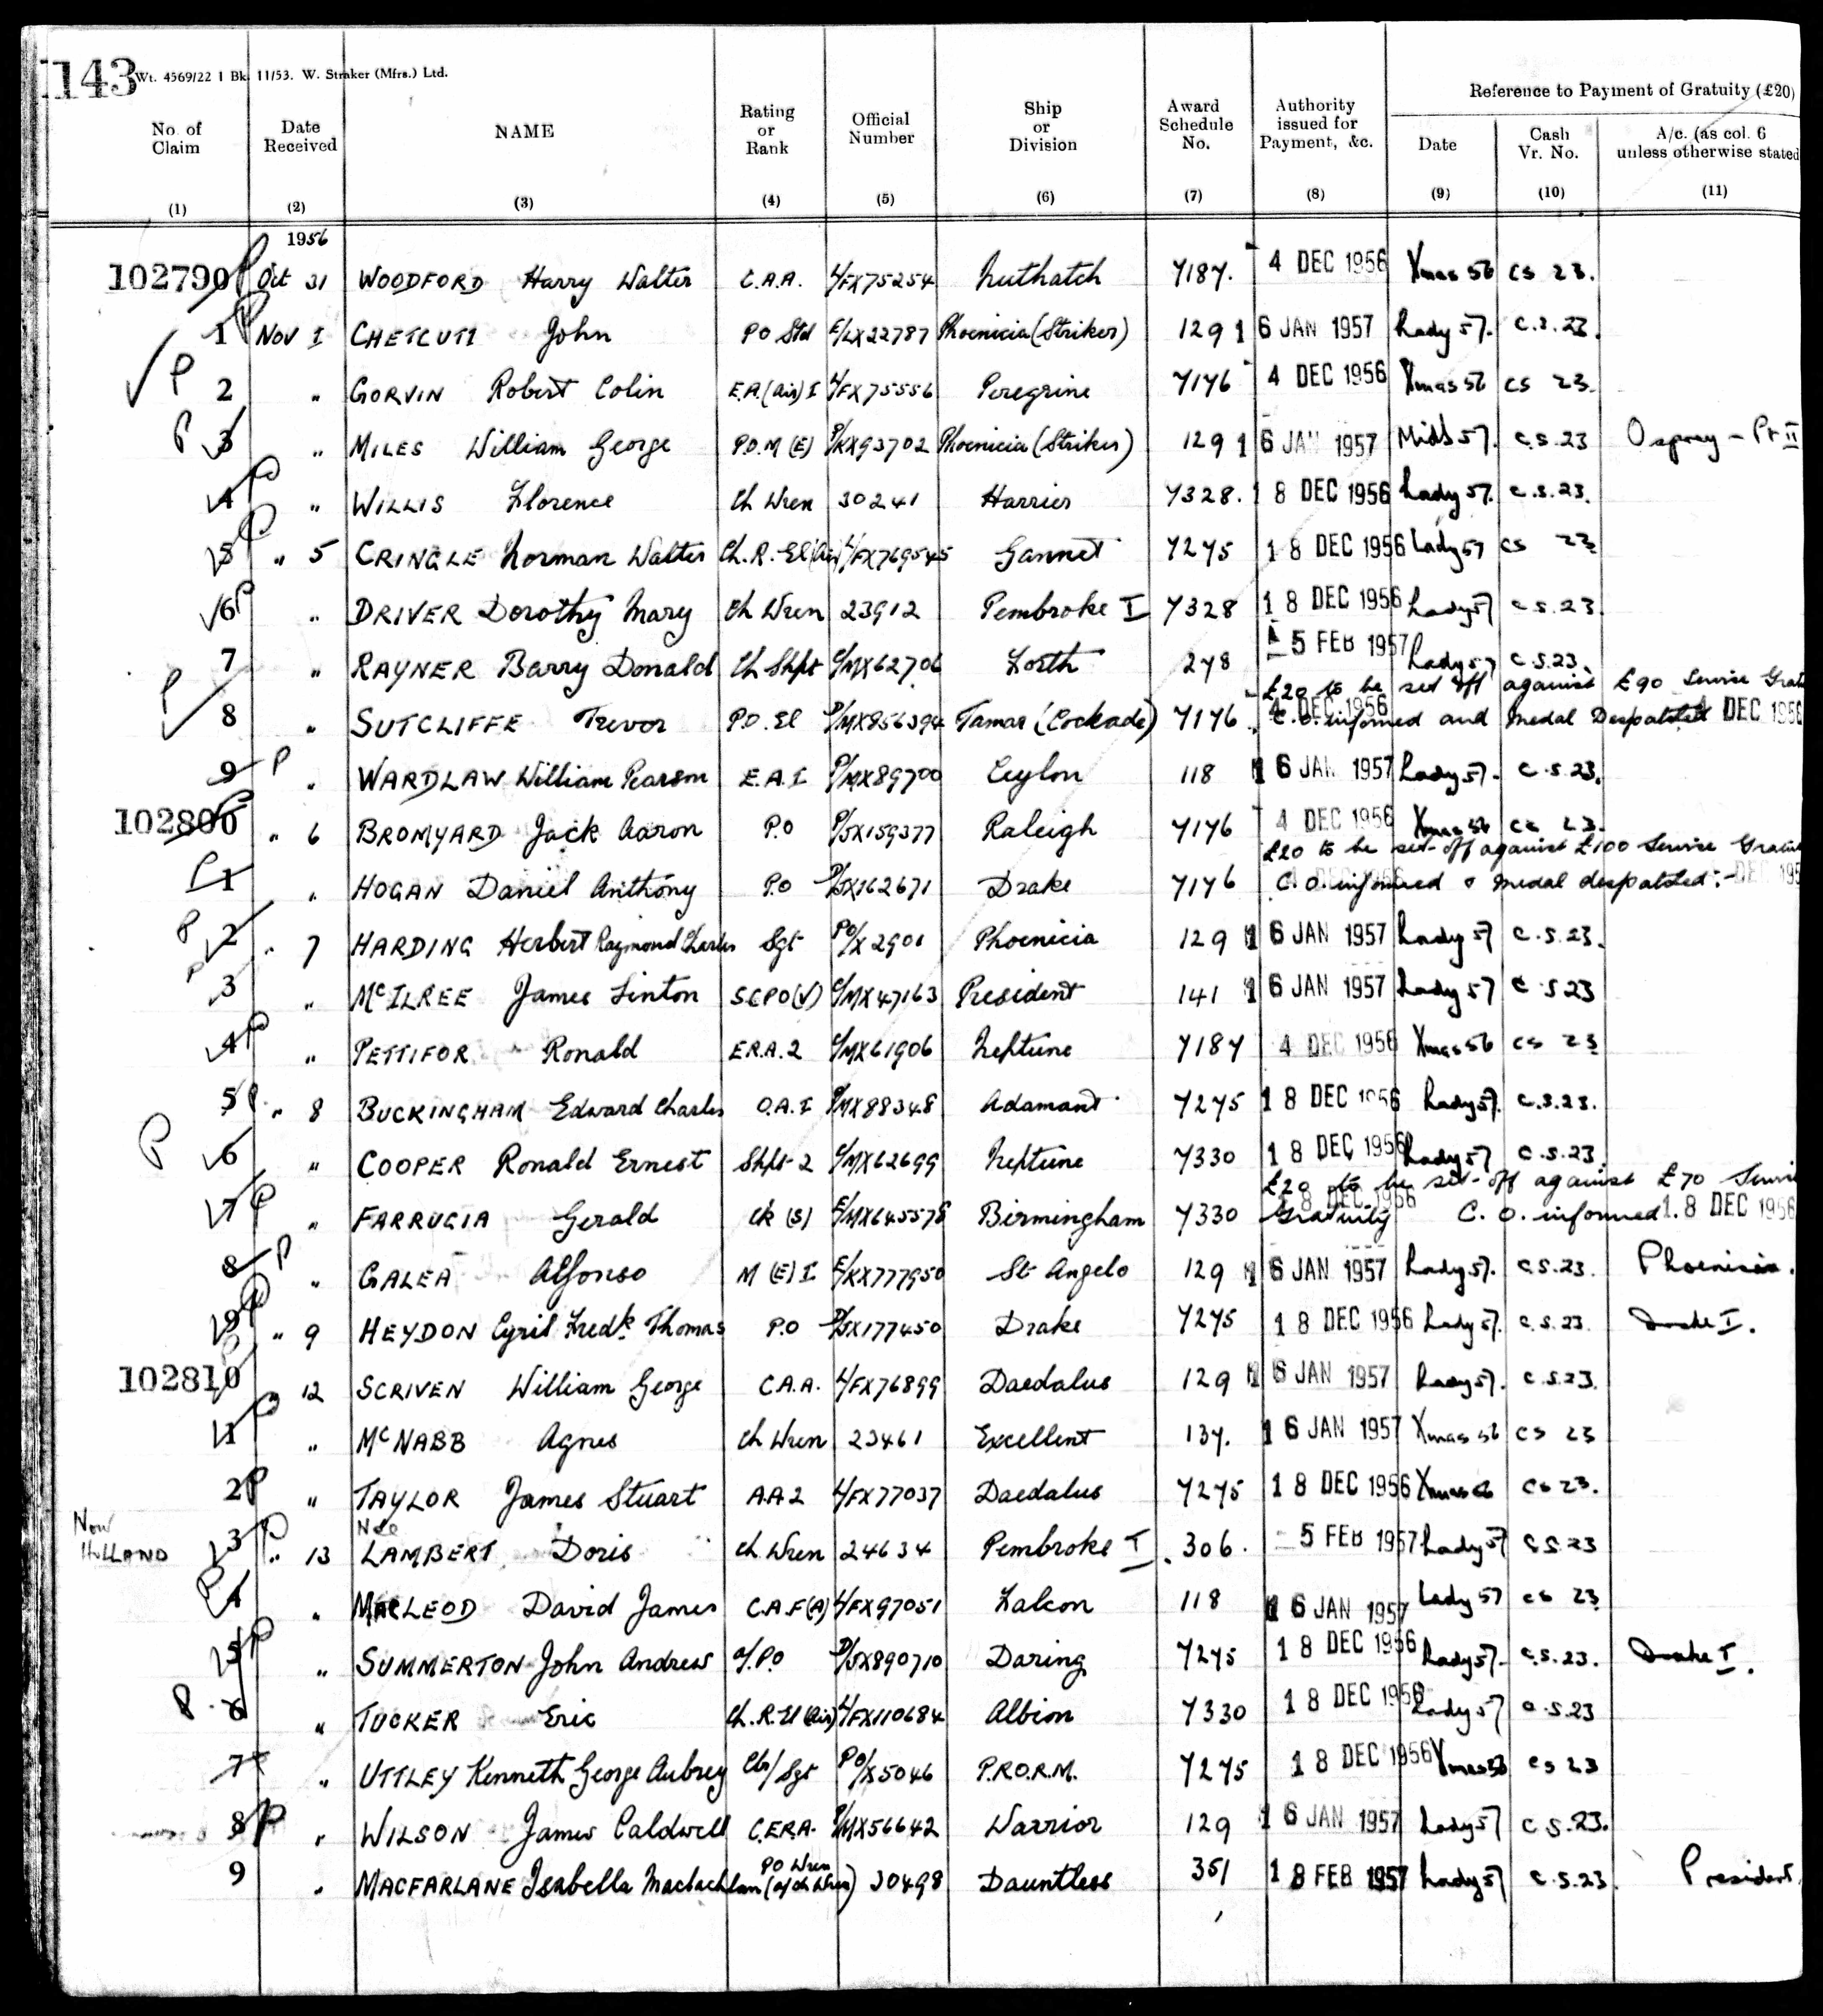 143 Wt. 4569/22 1 Bk. 11/53. W. Straker (Mfrs.) Ltd.
Reference to Payment of Gratuity (£20)
No. of Claim Date Received NAME Rating or Rank Official Number Ship or Division Award Schedule No. Authority issued for Payment, &c. Date Cash Vr. No. A/c. (as col. 6 unless otherwise stated
(1) (2) (3) (4) (5) (6) (7) (8) (9) (10) (11)
1956
102790 P Oct 31 WOODFORD Harry Walter C.A.A. L/FX75254 Nuthatch 7187. 4 DEC 1956 Xmas 56 CS 23.
1 P Nov 1 CHETCUTI John PO Std E/LX22787 Phoenicia (Striker) 129 16 JAN 1957 Lady 57. C.S.23.
P 2 " GORVIN Robert Colin E.A.(Air) I L/FX75556 Peregrine 7176 4 DEC 1956 Xmas 56 CS 23.
P 3 " MILES William George P.O.M (E) P/KX93702 Phoenicia (Striker) 129 16 JAN 1957 Mids 57. C.S.23 Osprey - Pt II
4 P " WILLIS Florence Ch Wren 30241 Harrier 7328. 18 DEC 1956 Lady 57. C.S.23.
5 P " 5 CRINGLE Norman Walter Ch.R.El(Air) L/FX769545 Gannet 7275 18 DEC 1956 Lady 57 CS 23
6 P " DRIVER Dorothy Mary Ch Wren 23912 Pembroke I 7328 18 DEC 1956 Lady 57 C.S.23.
7 " RAYNER Barry Donald Ch Shpt C/MX62706 Forth 278 5 FEB 1957 Lady 57 C.S.23.
£20 to be set off against £90 Service Grat
P 8 " SUTCLIFFE Trevor P.O. El P/MX856394 Tamar (Cockade) 7176. 4 DEC 1956 C.O. informed and Medal Despatched 4 DEC 1956
9 P " WARDLAW William Pearson E.A.I P/MX89700 Ceylon 118 16 JAN 1957 Lady 57. C.S.23.
102800 P " 6 BROMYARD Jack Aaron P.O P/JX159377 Raleigh 7176 4 DEC 1956 Xmas 56 CS 23.
£20 to be set-off against £100 Service Gratui
P 1 " HOGAN Daniel Anthony P.O D/JX162671 Drake 7176 C.O. informed & medal despatched:- DEC 195
P 2 " 7 HARDING Herbert Raymond Charles Sgt PO/X 2901 Phoenicia 129 16 JAN 1957 Lady 57 C.S.23.
P 3 " McILREE James Linton SCPO(V) C/MX47163 President 141 16 JAN 1957 Lady 57 C.S23
4 P " PETTIFOR Ronald E.R.A.2 C/MX61906 Neptune 7187 4 DEC 1956 Xmas 56 CS 23
5 P " 8 BUCKINGHAM Edward Charles O.A.I P/MX88348 Adamant 7275 18 DEC 1956 Lady 57. C.S.23.
P 6 " COOPER Ronald Ernest Shpt 2 C/MX62699 Neptune 7330 18 DEC 1956 Lady 57 C.S.23
£20 to be set-off against £70 Servi
7 P " FARRUGIA Gerald Ck (S) E/MX645578 Birmingham 7330 8 DEC 1956 Gratuity C.O. informed 18 DEC 1956
8 P " GALEA Alfonso M (E) I E/KX777950 St Angelo 129 16 JAN 1957 Lady 57. C.S.23. Phoenicia.
9 P " 9 HEYDON Cyril Fredk. Thomas P.O D/JX177450 Drake 7275 18 DEC 1956 Lady 57. C.S.23. Drake I.
102810 P " 12 SCRIVEN William George C.A.A. L/FX76899 Daedalus 129 16 JAN 1957 Lady 57. C.S.23.
1 P " McNABB Agnes Ch Wren 23461 Excellent 137. 16 JAN 1957 Xmas 56 CS 23
2 P " TAYLOR James Stuart A.A 2 L/FX77037 Daedalus 7275 18 DEC 1956 Xmas 56 CS 23.
Now Nee
HOLLAND 3 P " 13 LAMBERT Doris Ch Wren 24634 Pembroke I. 306. 5 FEB 1957 Lady 57 C.S.23
P 4 " MACLEOD David James C.A.F(A) L/FX97051 Falcon 118 16 JAN 1957 Lady 57 CS 23
5 P " SUMMERTON John Andrew A/.P.O D/JX890710 Daring 7275 18 DEC 1956 Lady 57. C.S.23. Drake I.
P. 6 " TUCKER Eric Ch.R.El (Air) L/FX110684 Albion 7330 18 DEC 1956 Lady 57 C.S.23
7 " UTTLEY Kenneth George Aubrey Clr/Sgt PO/X5046 P.R.O.R.M. 7275 18 DEC 1956 Xmas 56 CS 23
8 P " WILSON James Caldwell C.E.R.A. P/MX56642 Warrior 129 16 JAN 1957 Lady 57 C.S.23.
9 " MACFARLANE Isabella Maclachlan PO Wren (a/ch Wren) 30498 Dauntless 351 18 FEB 1957 Lady 57 C.S.23. President.